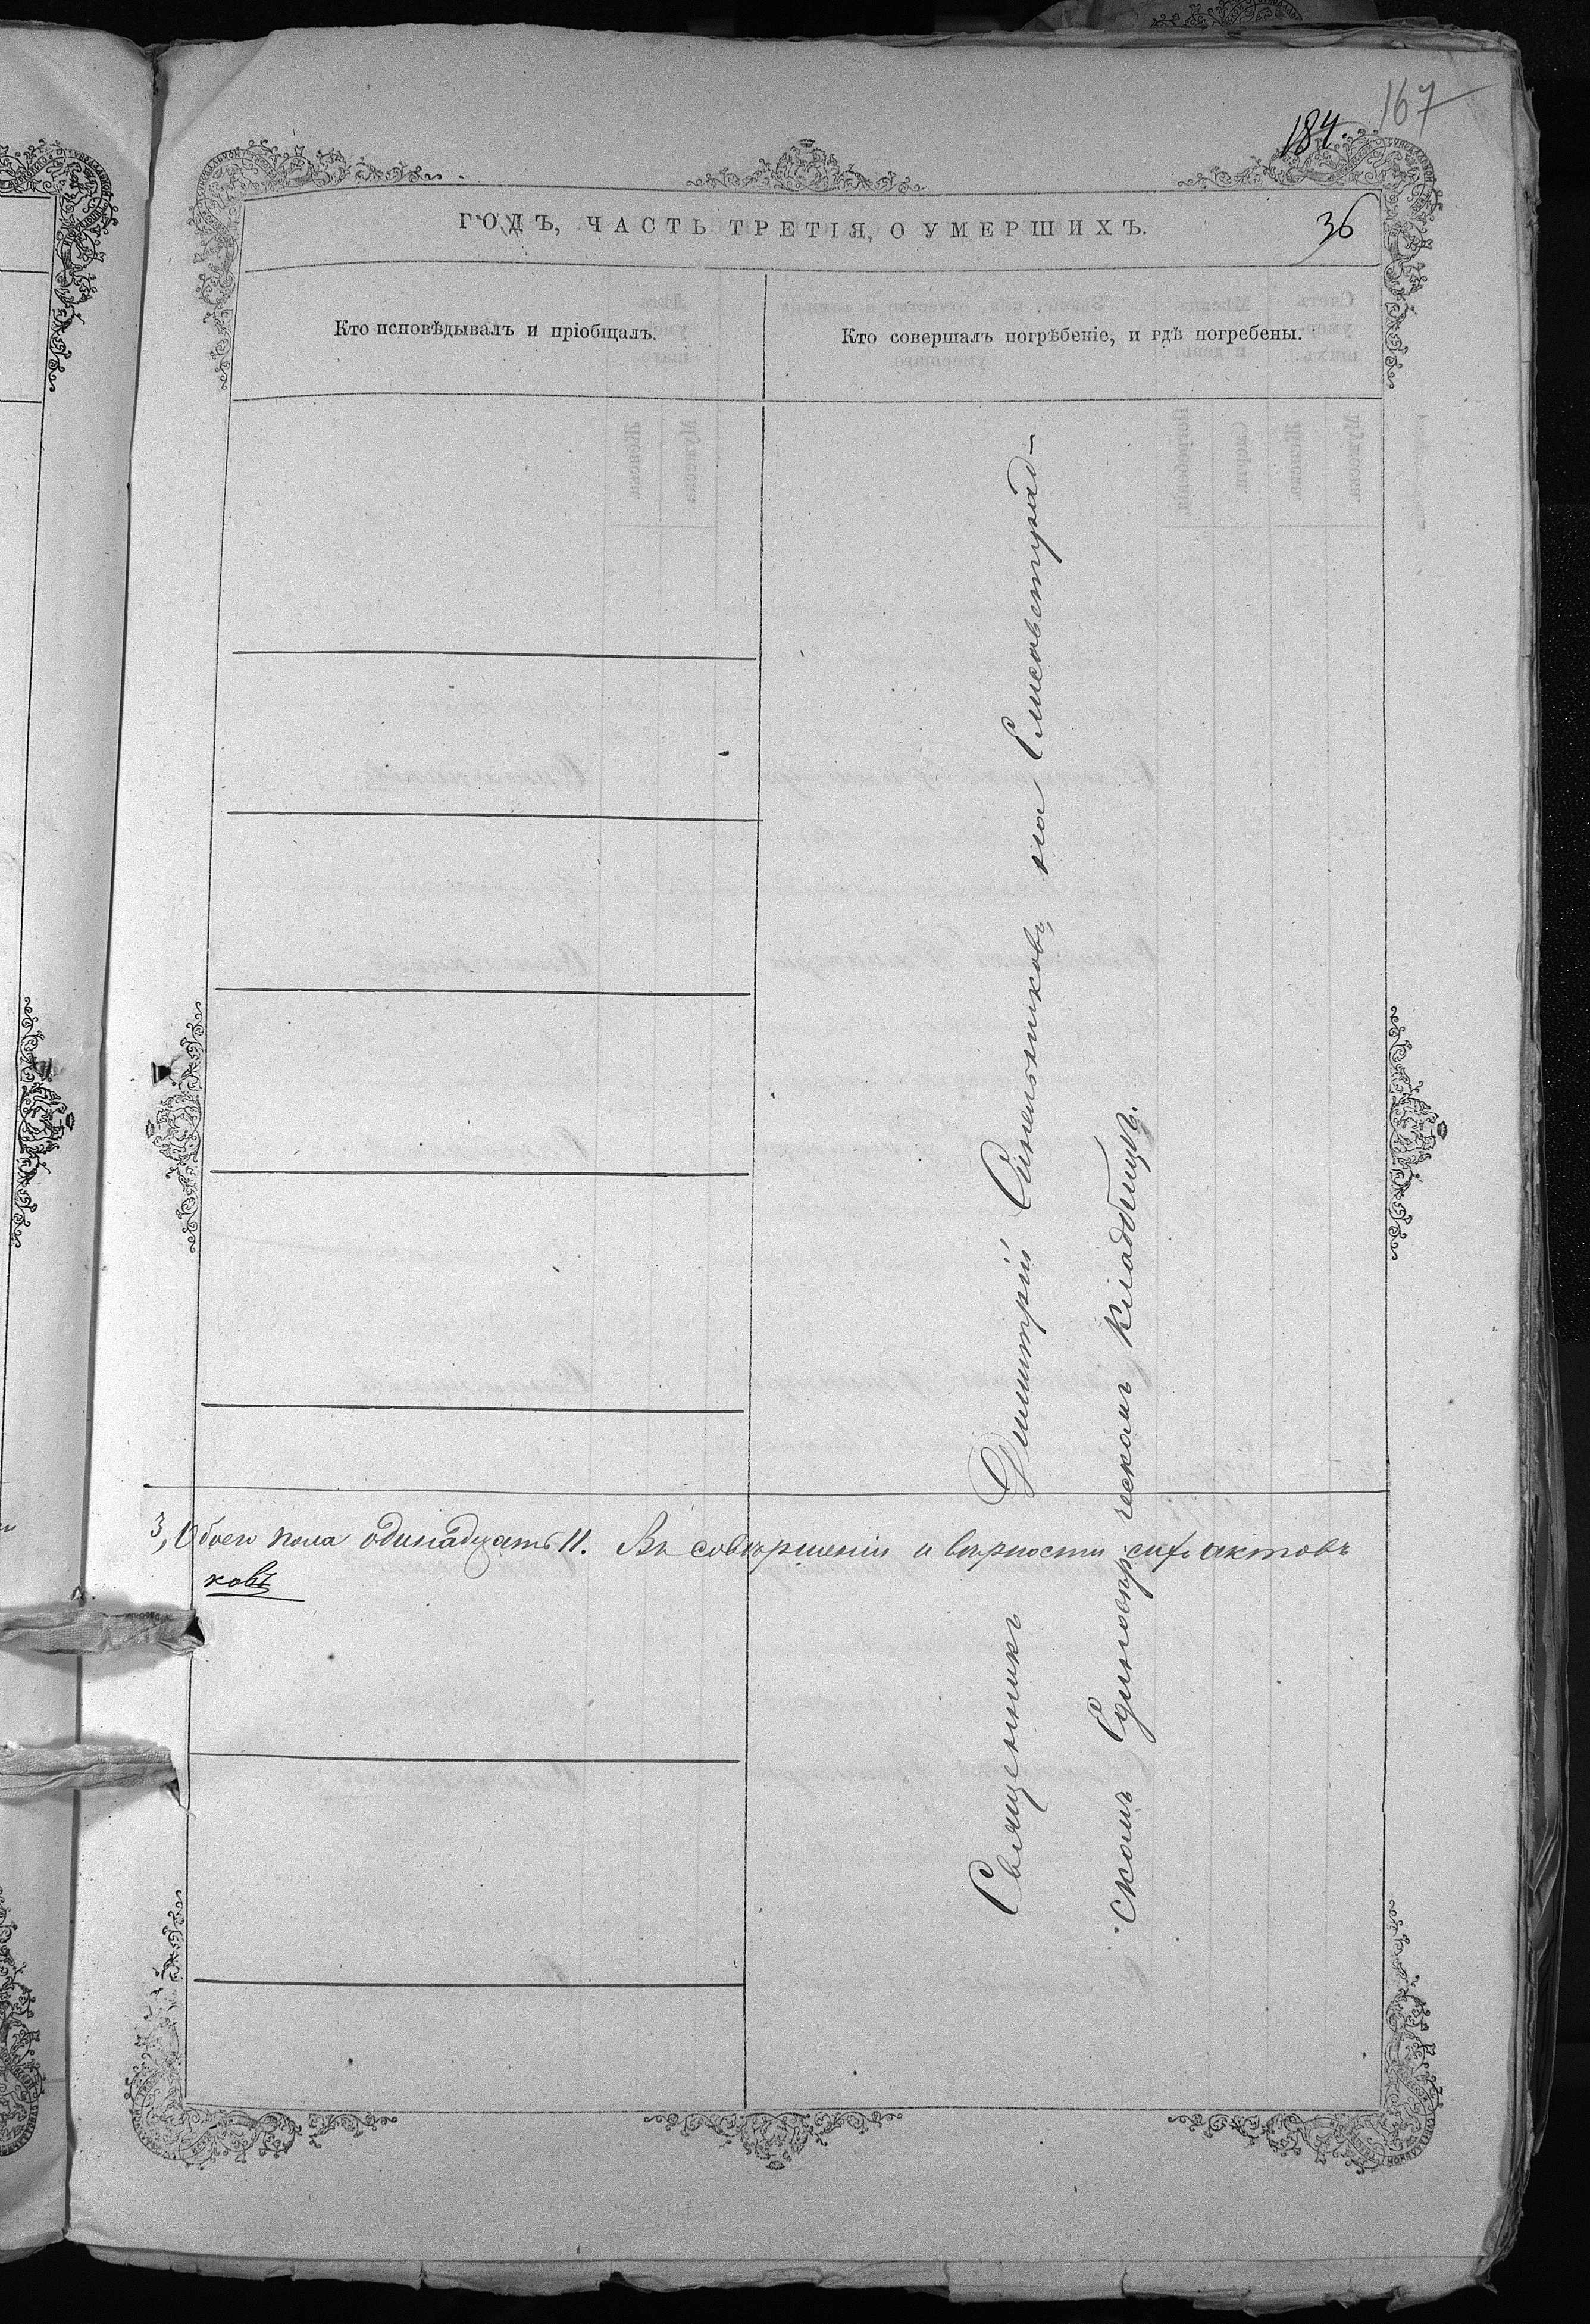 167
184.
ГОДЪ, ЧАСТЬ ТРЕТІЯ, О УМЕРШИХЪ.
36
Кто исповѣдывалъ и пріобщалъ.
Кто совершалъ погрѣбеніе, и гдѣ погребены.
Священникъ Димитрій Синельниковъ, на Елисаветград-
скомъ Единовѣрческомъ кладбищѣ.
3, Обоего пола одинадцать 11. Въ совершеніи и вѣрности сихъ актовъ
ковъ